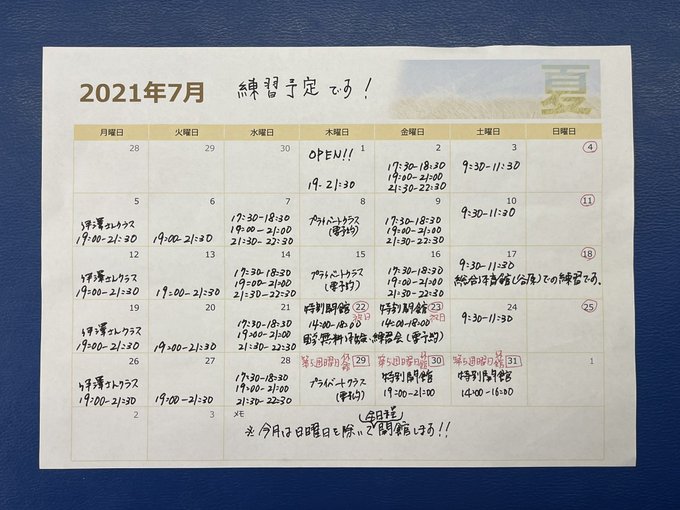 2021年7月 練習予定です! 夏
月曜日 火曜日 水曜日 木曜日 金曜日 土曜日 日曜日
28 29 30 1 2 3 4
OPEN!!
19-21:30
17:30-18:30
19:00-21:00
21:30-22:30
9:30-11:30
5 6 7 8 9 10 11
伊澤さんクラス
19:00-21:30
19:00-21:30
17:30-18:30
19:00-21:00
21:30-22:30
プライベートクラス
(要予約)
17:30-18:30
19:00-21:00
21:30-22:30
9:30-11:30
12 13 14 15 16 17 18
伊澤さんクラス
19:00-21:30
19:00-21:30
17:30-18:30
19:00-21:00
21:30-22:30
プライベートクラス
(要予約)
17:30-18:30
19:00-21:00
21:30-22:30
9:30-11:30
総合体育館(谷原)での練習です。
19 20 21 22 23 24 25
伊澤さんクラス
19:00-21:30
19:00-21:30
17:30-18:30
19:00-21:00
21:30-22:30
特別開館 祝日
14:00-18:00
特別開館 祝日
14:00-18:00
無料体験・練習会(要予約)
9:30-11:30
26 27 28 29 30 31 1
伊澤さんクラス
19:00-21:30
19:00-21:30
17:30-18:30
19:00-21:00
21:30-22:30
第5週曜日休館
プライベートクラス
(要予約)
第5週曜日休館
特別開館
19:00-21:00
第5週曜日休館
特別開館
14:00-16:00
2 3 メモ
※今月は日曜日を除いて(全日程)開館します!!